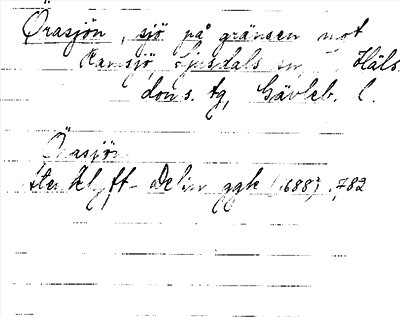 Örasjön, sjö på gränsen mot
Ramsjö, Ljusdals sn, Häls.
doms. tg, Gävleb. l.
Örasjön
Delin ggk (1688) 782